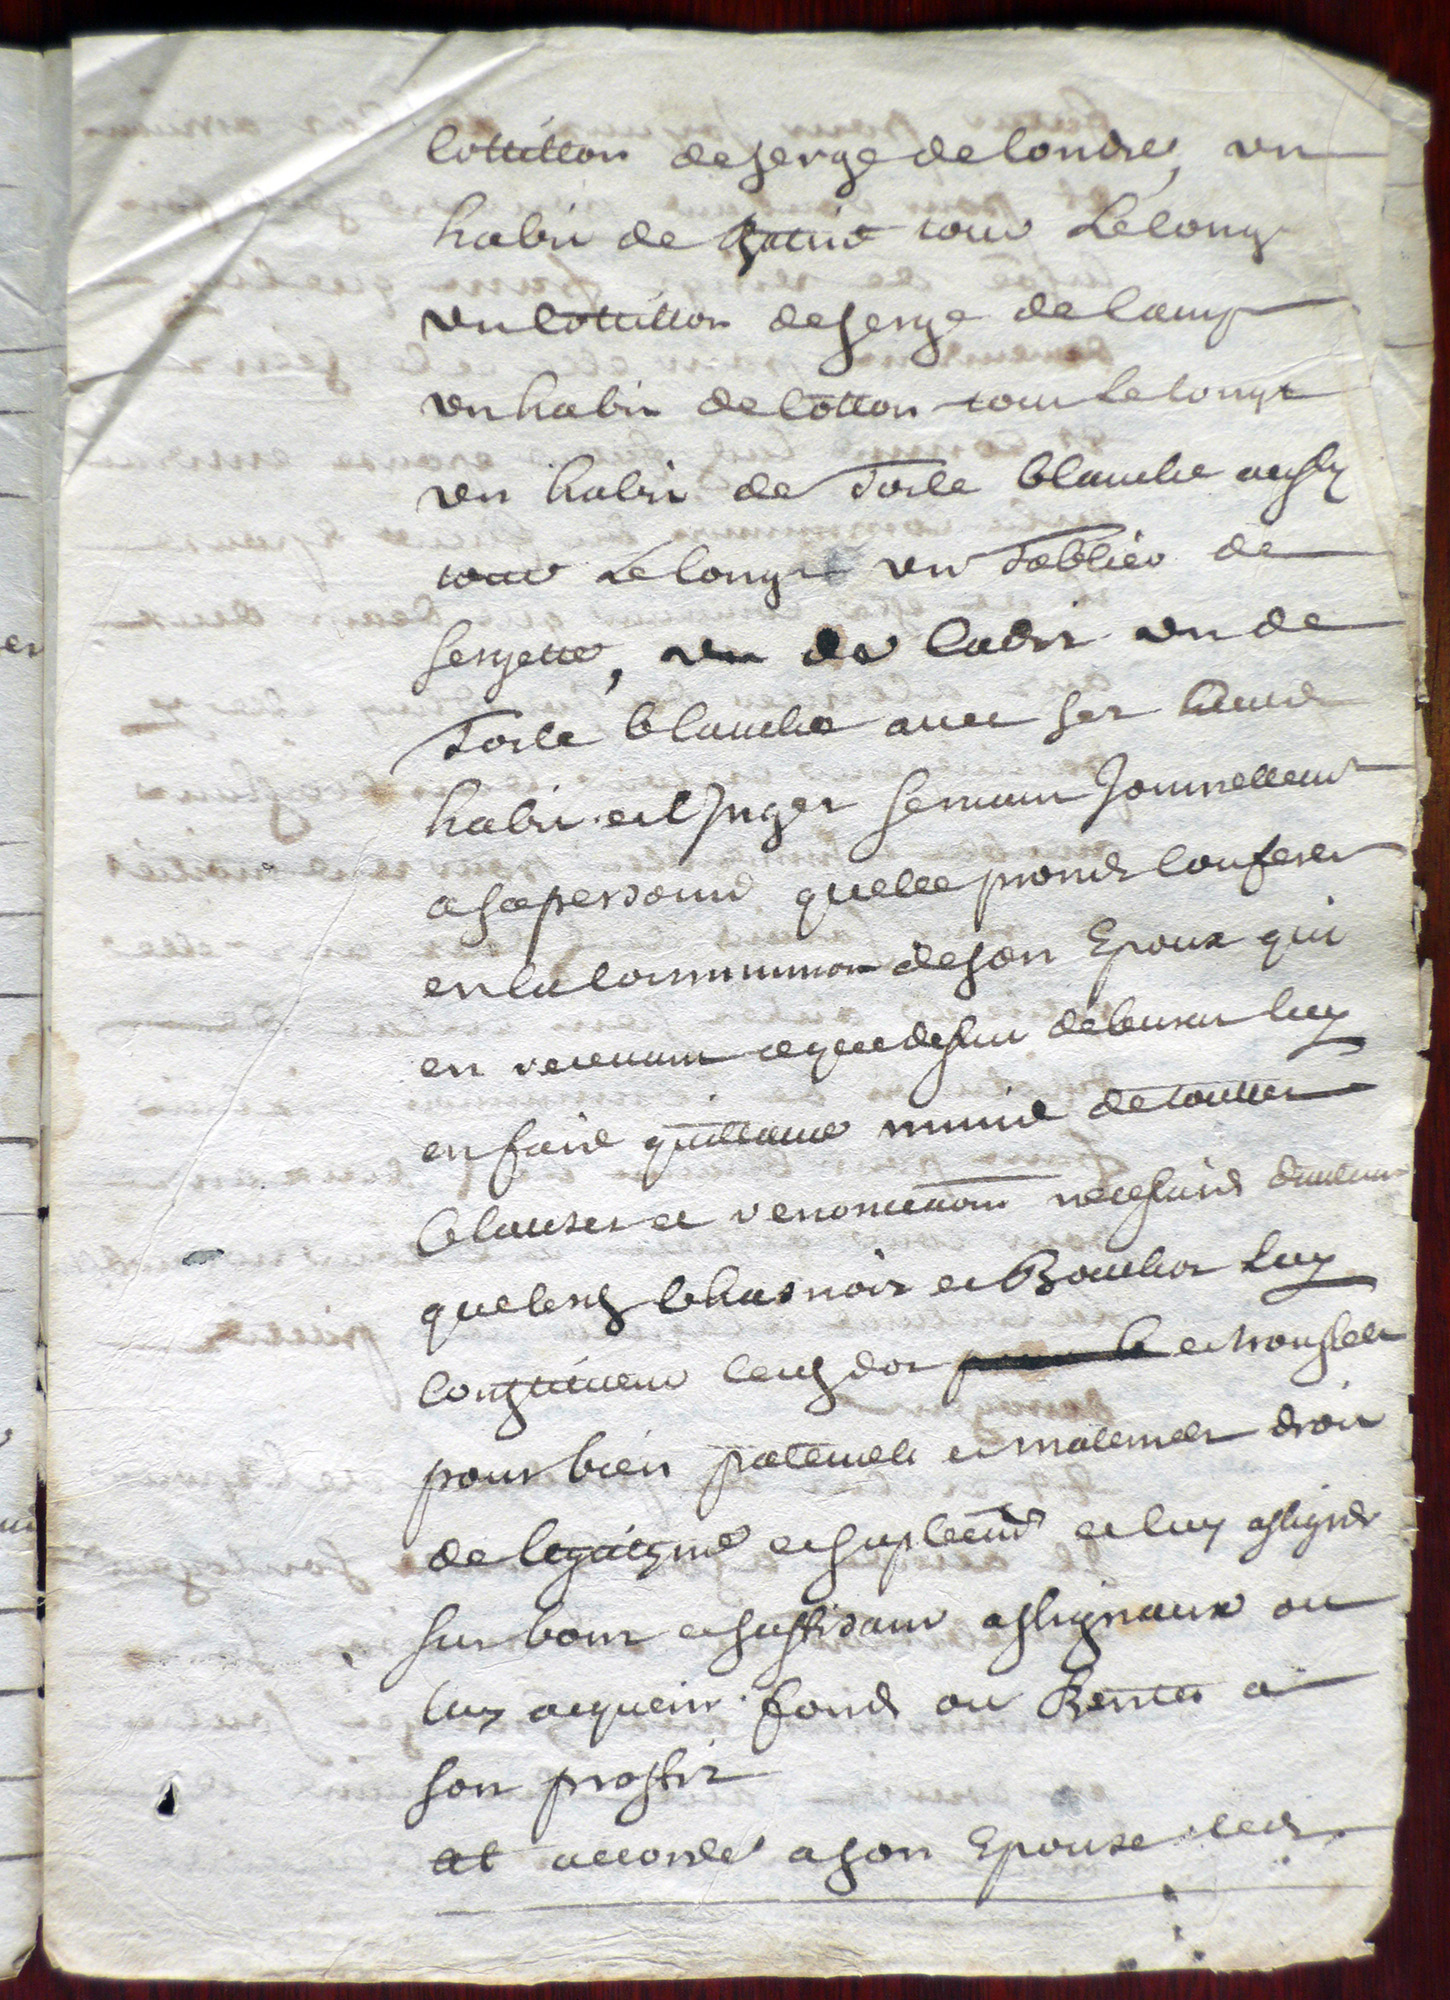 cottillon de serge de londre, un
habit de satine tout Le long
un cottillon de serge de camp
un habit de cotton tout Le long
un habit de Toile blanche aussy
tout Le long un Tablier de
sergette, un de cadis un de
Toile blanche avec ses autre
habit et linges servant Journellemt
a sa personne quelle promet conferer
en la communion de son Epoux qui
en recevant ce que dessus debvra luy
en faire quittance munie de touttes
clauses et renonciation necessaire
que lesd Chasnoir et Bouchot Luy
constituent lesd dot et trousseau
pour bien paternels et maternels droit
de legitime et suplement et luy assigner
sur bons et suffisant assignaux ou
luy acquerir fond ou Rentes a
son proffit
at accordé a son Epouse